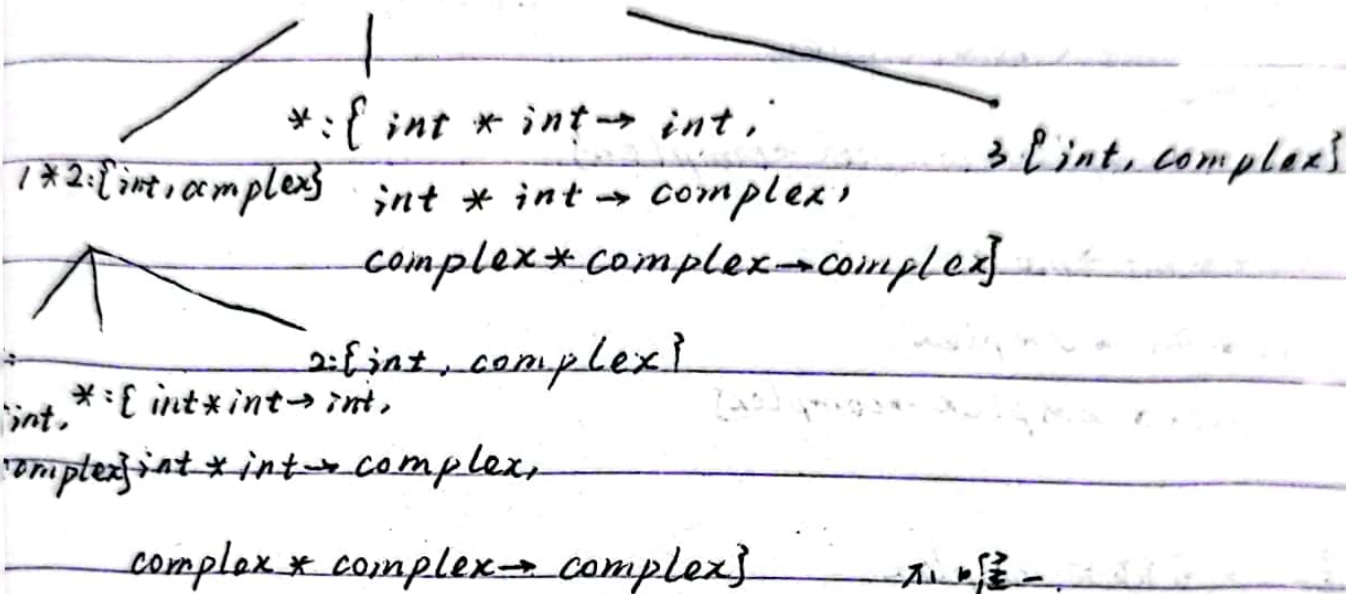 *:{ int * int → int,
3 {int, complex}
1*2:{int, complex}
int * int → complex,
complex * complex → complex}
2:{int, complex}
:
int,
*:{ int*int → int,
omplex}
int * int → complex,
complex * complex → complex}
不唯一